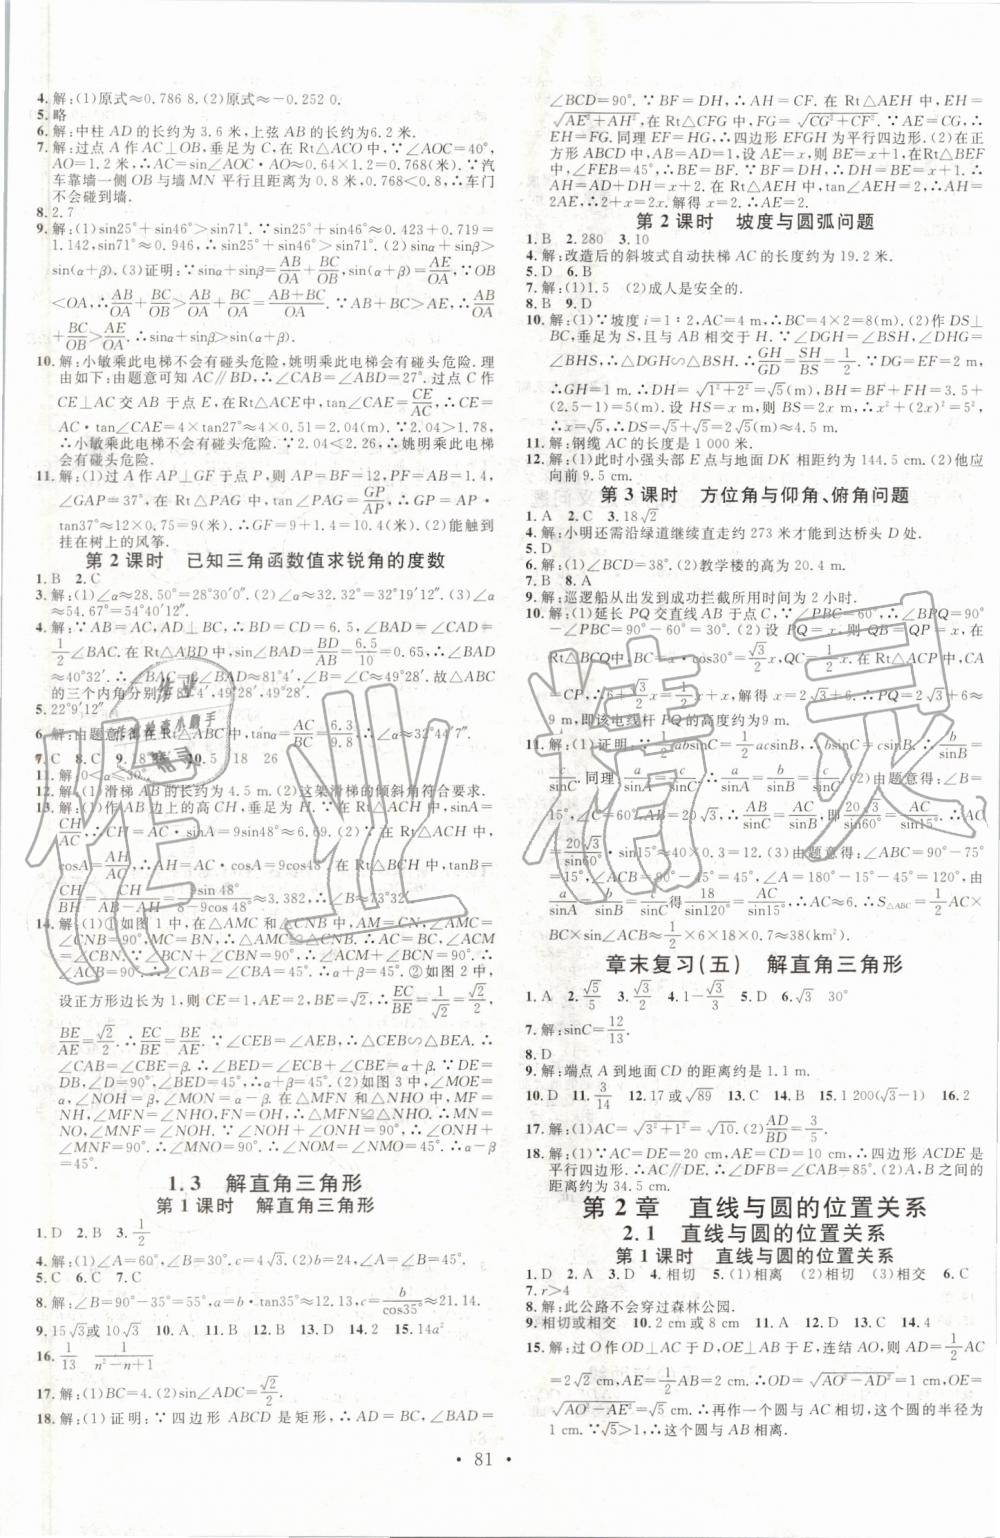 4. 解:(1)原式≈0.786 8. (2)原式≈−0.252 0.
5. 略
6. 解:中柱 AD 的长约为 3.6 米,上弦 AB 的长约为6.2 米.
7. 解:过点 A 作 AC⊥OB,垂足为 C,在 Rt△AOC 中,∵∠AOC=40°,
AO=1.2 米,∴AC=sin∠AOC·AO≈0.64×1.2=0.768(米).∵汽
车靠墙一侧 OB 与墙 MN 平行且距离为 0.8 米,0.768<0.8,∴车门
不会碰到墙.
8. 2.7
9. 解:(1)sin25°+sin46°>sin71°. ∵sin25°+sin46°≈0.423+0.719=
1.142,sin71°≈0.946,∴sin25°+sin46°>sin71°. (2)sinα+sinβ>
sin(α+β). (3)证明:∵sinα+sinβ=AB/OA+BC/OB,sin(α+β)=AE/OA,∵OB
<OA,∴AB/OA+BC/OB>AB/OA+BC/OA=(AB+BC)/OA.∵AB+BC>AE,∴AB/OA+
BC/OB>AE/OA.∴sinα+sinβ>sin(α+β).
10. 解:小敏乘此电梯不会有碰头危险,姚明乘此电梯会有碰头危险.理
由如下:由题意可知 AC∥BD,∴∠CAB=∠ABD=27°. 过点 C 作
CE⊥AC 交 AB 于点 E,在 Rt△ACE 中,tan∠CAE=CE/AC,∴CE=
AC·tan∠CAE=4×tan27°≈4×0.51=2.04(米).∵2.04>1.78,
∴小敏乘此电梯不会有碰头危险.∵2.04<2.26,∴姚明乘此电梯
会有碰头危险.
11. 解:(1)过点 A 作 AP⊥GF 于点 P,则 AP=BF=12,AB=PF=1.4,
∠GAP=37°,在 Rt△PAG 中,tan∠PAG=GP/AP,∴GP=AP·
tan37°≈12×0.75=9(米).∴GF=9+1.4≈10.4(米). (2)能触到
挂在树上的风筝.
第 2 课时 已知三角函数值求锐角的度数
1. B 2. C
3. 解:(1)∠α≈28.50°=28°30′0″. (2)∠α≈32.33°=32°19′48″. (3)∠α
≈54.67°=54°40′12″.
4. 解:∵AB=AC,AD⊥BC,∴BD=CD=6.5,∠BAD=∠CAD=
1/2∠BAC. 在 Rt△ABD 中,sin∠BAD=BD/AB=6.5/10=0.65,∴∠BAD
≈40°32′.∴∠BAC=2∠BAD≈81°4′,∠B=∠C≈49°28′.故△ABC
的三个内角分别为81°4′,49°28′,49°28′.
5. 22°9′12″
6. 解:由题意得在Rt△ABC中,tanα=AC/BC=6.3/9.8,∴∠α≈32°44′7″.
7. C 8. C 9. 18 10. 5 18 26
11. 解:0<α≤30°.
12. 解:(1)滑梯 AB的长约为 4.5 m. (2)这架滑梯的倾斜角符合要求.
13. 解:(1)作AB 边上的高 CH,垂足为 H,∵在 Rt△ACH 中,sinA=
CH/AC,∴CH=AC·sinA=9sin48°≈6.69. (2)∵在 Rt△ACH 中,
cosA=AH/AC,∴AH=AC·cosA=9cos48°.∴在 Rt△BCH 中,tanB=
CH/BH=CH/(AB−AH)=9sin48°/(8−9cos48°)≈3.382,∴∠B≈73°32′.
14. 解:(1)①如图 1 中,在△AMC 和△CNB 中,AM=CN,∠AMC
=∠CNB=90°,MC=BN,∴△AMC≌△CNB.∴AC=BC,∠ACM
=∠CBN. ∵∠BCN+∠CBN=90°,∴∠ACM+∠BCN=90°.
∴∠ACB=90°.∴∠CAB=∠CBA=45°.∴α+β=45°. ②如图 2 中,
设正方形边长为 1,则 CE=1,AE=2,BE=√2,∴EC/BE=1/√2=√2/2,
BE/AE=√2/2. ∴EC/BE=BE/AE. ∵∠CEB=∠AEB,∴△CEB∽△BEA.
∴∠CAB=∠CBE=β.∴α+β=∠BED=45°. (2)如图 3 中,∵DE=
DB,∠D=90°,∴∠BED=∠ECB+∠CBE=α+β=45°.
α,∠NOH=β,∠MON=α−β,在△MFN 和△NHO 中,MF=
NH,∠MFN=∠NHO,FN=HO,∴△MFN≌△NHO.∴MN=
NO,∠MNF=∠NOH. ∵∠NOH+∠ONH=90°,∴∠ONH+
∠MNF=90°.∴∠MNO=90°.∴∠NOM=∠NMO=45°.∴α−β
=45°.
1.3 解直角三角形
第 1 课时 解直角三角形
1. D 2. B 3. 1/2
4. 解:(1)∠A=60°,∠B=30°,c=4√3. (2)b=4,∠A=∠B=45°.
5. C 6. C 7. C
8. 解:∠B=90°−35°=55°,a=b·tan35°≈12.13,c=b/cos35°≈21.14.
9. 15√3或 10√3 10. A 11. B 12. B 13. A 14. 2 15. 14a²
16. 1/13 1/(n²−n+1)
17. 解:(1)BC=4. (2)sin∠ADC=√2/2.
18. 解:(1)证明:∵四边形 ABCD 是矩形,∴AD=BC,∠BAD=
∠BCD=90°. ∵BF=DH,∴AH=CF. 在 Rt△AEH 中,EH=
√(AE²+AH²),在 Rt△CFG 中,FG=√(CG²+CF²). ∵AE=CG,∴EH=
FG. 同理 EF=HG,∴四边形 EFGH 为平行四边形. (2)在
正方形 ABCD 中,AB=AD=1,设AE=x,则 BE=x+1,在Rt△BEF
中,∠FEB=45°,∴BE=BF. ∵BF=DH,∴DH=BE=x+1,
∴AH=AD+DH=x+2. 在Rt△AEH 中,tan∠AEH=2,∴AH=
2AE.∴2+x=2x. 解得 x=2.∴AE=2.
第 2 课时 坡度与圆弧问题
1. B 2. 280 3. 10
4. 解:改造后的斜坡式自动扶梯 AC 的长度约为 19.2 米.
5. D 6. B
7. 解:(1)1.5 (2)成人是安全的.
8. B 9. D
10. 解:(1)∵坡度 i=1∶2,AC=4 m,∴BC=4×2=8(m). (2)作 DS⊥
BC,垂足为 S,且与 AB 相交于 H.∵∠DGH=∠BSH,∠DHG=
∠BHS,∴△DGH∽△BSH.∴GH/GD=SH/BS=1/2.∵DG=EF=2 m,
∴GH=1 m.∴DH=√(1²+2²)=√5(m),BH=BF+FH=3.5+
(2.5−1)=5(m). 设 HS=x m,则 BS=2x m,∴x²+(2x)²=
5².∴x=√5.∴DS=√5+√5=2√5(m)≈4.5 m.
11. 解:钢缆 AC 的长度是 1 000 米.
12. 解:(1)此时小强头部 E 点与地面 DK 相距约为 144.5 cm. (2)他应
向前 9.5 cm.
第 3 课时 方位角与仰角、俯角问题
1. A 2. C 3. 18√2
4. 解:小明还需沿绿道继续直走约 273 米才能到达桥头 D 处.
5. D
6. 解:(1)∠BCD=38°. (2)教学楼的高为 20.4 m.
7. B 8. A
9. 解:巡逻船从出发到成功拦截所用时间为 2 小时.
10. 解:(1)延长 PQ 交直线 AB 于点 C,∵∠PBC=60°,∴∠BPQ=90°
−∠PBC=90°−60°=30°. (2)设 PQ=x,则 QB=QP=x,在
Rt△BCQ中,BC=x·cos30°=√3/2x,QC=1/2x,在Rt△PCA中,CA
=CP,∴6+√3/2x=x+1/2x,解得 x=2√3+6,∴PQ=2√3+6≈
9 m,即该电线杆 PQ的高度约为9 m.
11. 解:(1)证明:∵1/2absinC=1/2acsinB,∴bsinC=csinB,∴b/sinB
=c/sinC.同理
15°,∠C=60°,AB=20√3,∴AB/sinC=AC/sinB,即20√3/sin60°=AC/sin15°,∴AC
=20√3/sin60°·sin15°≈40×0.3=12. (3)由题意得:∠ABC=90°−75°
=15°,∠ACB=90°−45°=45°,∠A=180°−15°−45°=120°. 由
a/sinA=b/sinB=c/sinC得:18/sin120°=AC/sin15°,∴AC≈6.∴S△ABC=1/2AC×
BC×sin∠ACB≈1/2×6×18×0.7≈38(km²).
章末复习(五) 解直角三角形
1. A 2. √5/5 3. √3/2 4. 1−√3/3 5. D 6. √3 30°
7. 解:sinC=12/13.
8. D
9. 解:端点 A 到地面 CD 的距离约是 1.1 m.
10. D 11. 3/14 12. 17 或√89 13. C 14. B 15. 1 200(√3−1) 16. 2
17. 解:(1)AC=√(3²+1²)=√10. (2)AD/BD=3/5.
18. 解:(1)∵AC=DE=20 cm,AE=CD=10 cm,∴四边形 ACDE 是
平行四边形.∴AC∥DE.∴∠DFB=∠CAB=85°. (2)A,B 之间的
距离约为 34.5 cm.
第 2 章 直线与圆的位置关系
2.1 直线与圆的位置关系
第 1 课时 直线与圆的位置关系
1. D 2. A 3. D 4. 相切 5. (1)相离 (2)相切 (3)相交 6. C
7. r>4
8. 解:此公路不会穿过森林公园.
9. 相切或相交 10. 2 cm 或 8 cm 11. D 12. D 13. C 14. 4
15. 解:过 O 作 OD⊥AC 于 D,OE⊥AB 于 E,连结 AO,则 AD=1/2AC
=2√2 cm,AE=1/2AB=2√3 cm,∴OD=√(AO²−AD²)=1 cm,OE=
√(AO²−AE²)=√5 cm.∴再作一个圆与 AC 相切,∴这个圆的半径为
1 cm.∵√5>1,∴这个圆与 AB 相离.
· 81 ·
作业
作业检查小助手
精灵
作业精灵